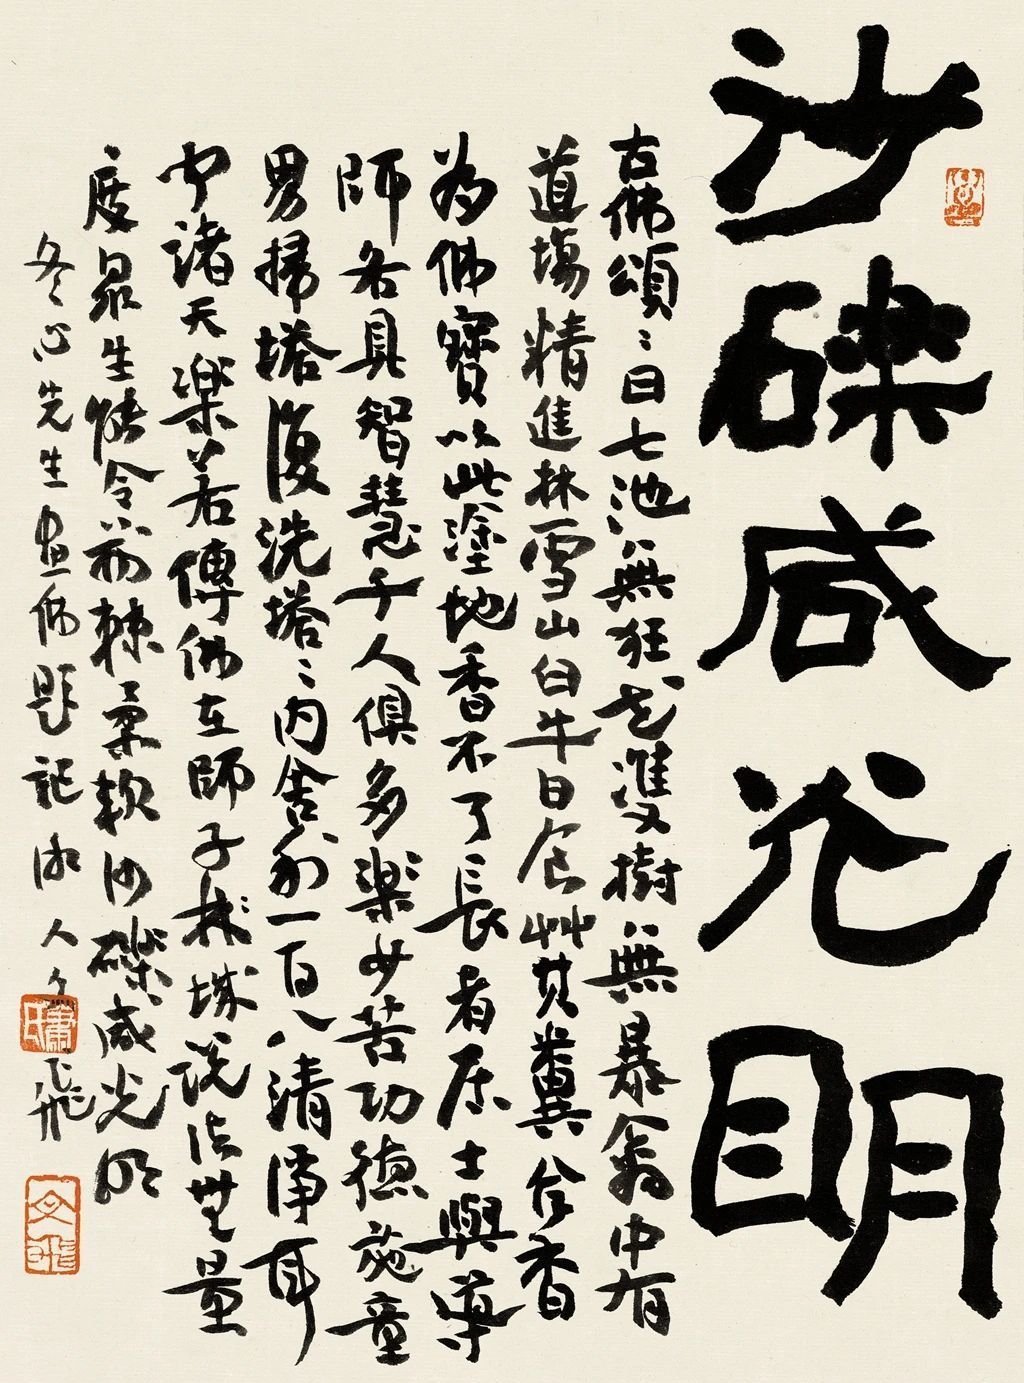 沙礫咸光明
古佛頌〻曰七池無狂花雙樹無暴禽中有
道場精進林雪山白牛日食艸其糞合香
為佛寶以此塗地香不了長者居士與導
師各具智慧千人俱多樂少苦功德施童
男掃塔復洗塔〻內舍利一百八清淨耳
中諸天樂若傳佛在師子林城說法無量
度眾生能令荊棘柔軟沙礫咸光明
冬心先生畫佛題記
飛